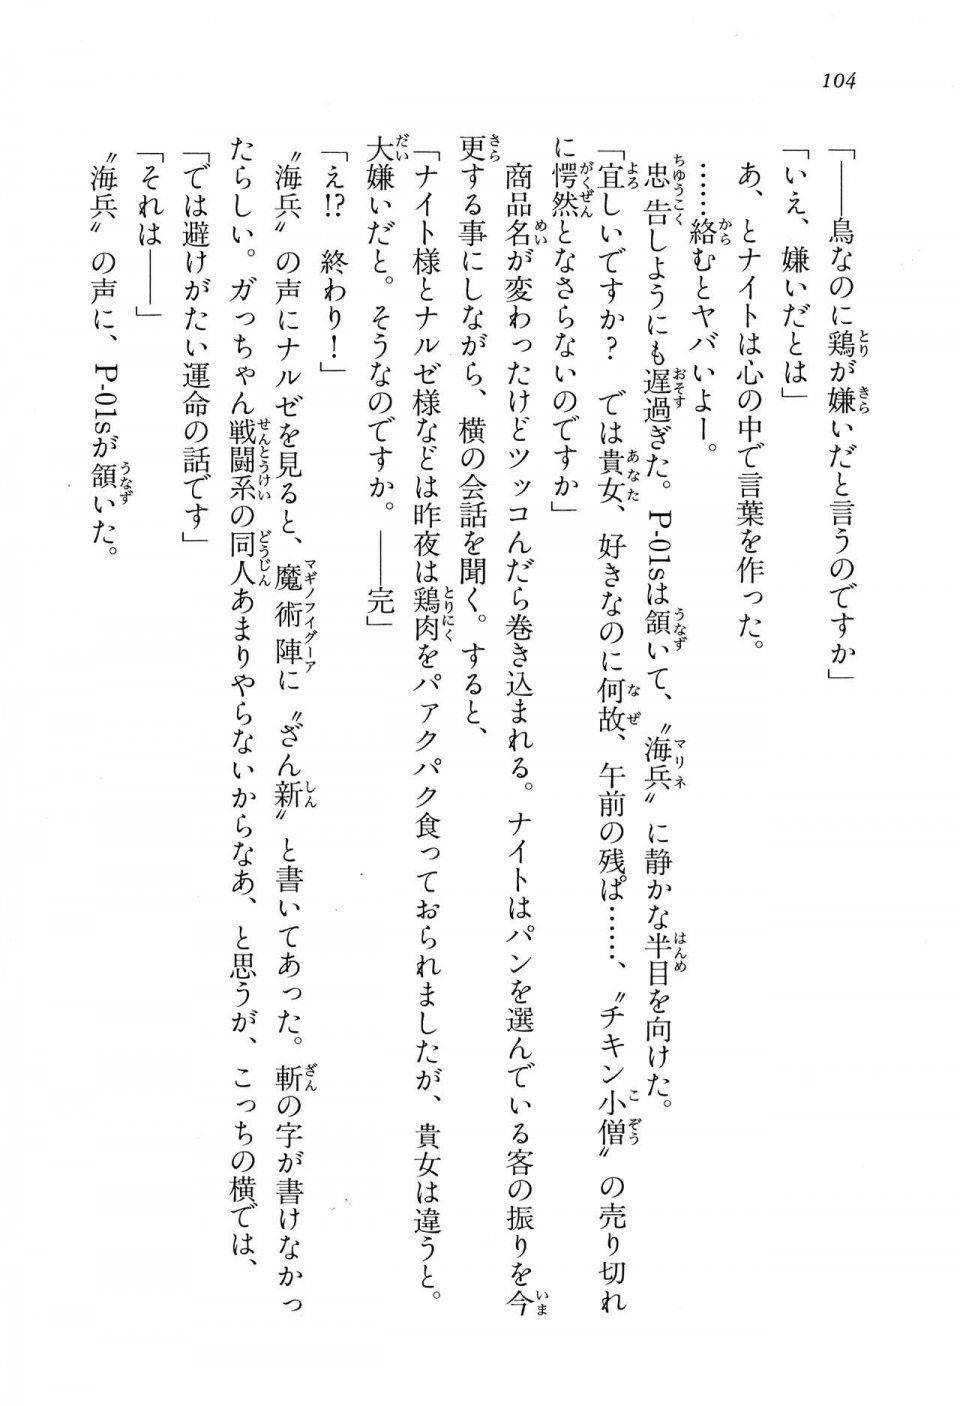 104
「――鳥なのに鶏が嫌いだと言うのですか」
「いえ、嫌いだとは」
あ、とナイトは心の中で言葉を作った。
……絡むとヤバいよー。
忠告しようにも遅過ぎた。P-01sは頷いて、〝海兵〟に静かな半目を向けた。
「宜しいですか？　では貴女、好きなのに何故、午前の残ぱ……、〝チキン小僧〟の売り切れ
に愕然となさらないのですか」
商品名が変わったけどツッコんだら巻き込まれる。ナイトはパンを選んでいる客の振りを今
更する事にしながら、横の会話を聞く。すると、
「ナイト様とナルゼ様などは昨夜は鶏肉をパァクパク食っておられましたが、貴女は違うと。
大嫌いだと。そうなのですか。――完」
「え!?　終わり！」
〝海兵〟の声にナルゼを見ると、魔術陣に〝ざん新〟と書いてあった。斬の字が書けなかっ
たらしい。ガっちゃん戦闘系の同人あまりやらないからなあ、と思うが、こっちの横では、
「では避けがたい運命の話です」
「それは――」
〝海兵〟の声に、P-01sが頷いた。